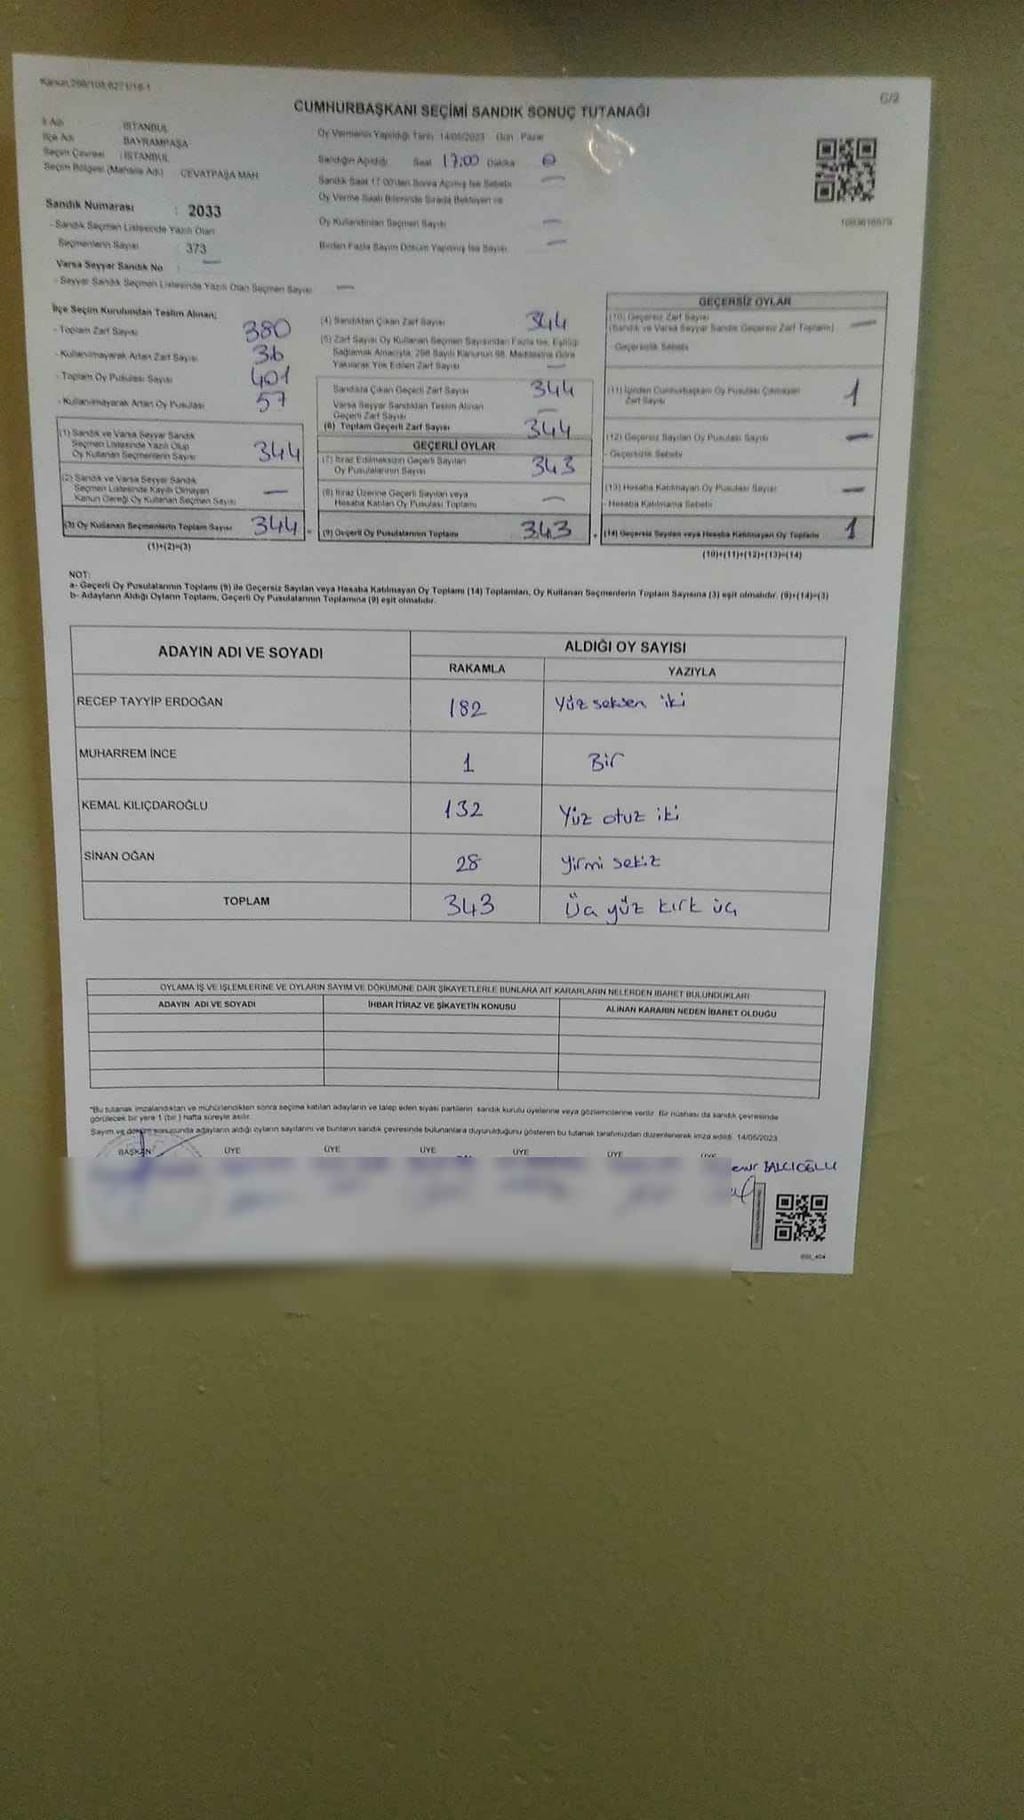 CUMHURBAŞKANI SEÇİMİ SANDIK SONUÇ TUTANAĞI
6/9
İl Adı İSTANBUL
İlçe Adı BAYRAMPAŞA
Seçim Çevresi : İSTANBUL
Seçim Bölgesi (Mahalle Adı) CEVATPAŞA MAH
Sandık Numarası : 2033
- Sandık Seçmen Listesinde Yazılı Olan
Seçmenlerin Sayısı 373
Varsa Seyyar Sandık No —
- Seyyar Sandık Seçmen Listesinde Yazılı Olan Seçmen Sayısı —
Oy Vermenin Yapıldığı Tarih 14/05/2023 Gün : Pazar
Sandığın Açıldığı Saat 17:00 Dakika 0
Sandık Saat 17.00'den Sonra Açılmış İse Sebebi —
Oy Verme Saati Bitiminde Sırada Bekleyen ve
Oy Kullandırılan Seçmen Sayısı —
Birden Fazla Sayım Döküm Yapılmış İse Sayısı —
İlçe Seçim Kurulundan Teslim Alınan;
- Toplam Zarf Sayısı 380
- Kullanılmayarak Artan Zarf Sayısı 36
- Toplam Oy Pusulası Sayısı 401
- Kullanılmayarak Artan Oy Pusulası 57
(1) Sandık ve Varsa Seyyar Sandık
Seçmen Listesinde Yazılı Olup
Oy Kullanan Seçmenlerin Sayısı 344
(2) Sandık ve Varsa Seyyar Sandık
Seçmen Listesinde Kayıtlı Olmayan
Kanun Gereği Oy Kullanan Seçmen Sayısı —
(3) Oy Kullanan Seçmenlerin Toplam Sayısı 344 =
(1)+(2)=(3)
(4) Sandıktan Çıkan Zarf Sayısı 344
(5) Zarf Sayısı Oy Kullanan Seçmen Sayısından Fazla İse, Eşitliği
Sağlamak Amacıyla, 298 Sayılı Kanunun 98. Maddesine Göre
Yakılarak Yok Edilen Zarf Sayısı —
Sandıkta Çıkan Geçerli Zarf Sayısı 344
Varsa Seyyar Sandıktan Teslim Alınan
Geçerli Zarf Sayısı —
(6) Toplam Geçerli Zarf Sayısı 344
GEÇERLİ OYLAR
(7) İtiraz Edilmeksizin Geçerli Sayılan
Oy Pusulalarının Sayısı 343
(8) İtiraz Üzerine Geçerli Sayılan veya
Hesaba Katılan Oy Pusulası Toplamı —
(9) Geçerli Oy Pusulalarının Toplamı 343 +
GEÇERSİZ OYLAR
(10) Geçersiz Zarf Sayısı
(Sandık ve Varsa Seyyar Sandık Geçersiz Zarf Toplamı) —
- Geçersizlik Sebebi
(11) İçinden Cumhurbaşkanı Oy Pusulası Çıkmayan
Zarf Sayısı 1
(12) Geçersiz Sayılan Oy Pusulası Sayısı —
- Geçersizlik Sebebi
(13) Hesaba Katılmayan Oy Pusulası Sayısı —
- Hesaba Katılmama Sebebi
(14) Geçersiz Sayılan veya Hesaba Katılmayan Oy Toplamı 1
(10)+(11)+(12)+(13)=(14)
NOT:
a- Geçerli Oy Pusulalarının Toplamı (9) ile Geçersiz Sayılan veya Hesaba Katılmayan Oy Toplamı (14) Toplamları, Oy Kullanan Seçmenlerin Toplam Sayısına (3) eşit olmalıdır. (9)+(14)=(3)
b- Adayların Aldığı Oyların Toplamı, Geçerli Oy Pusulalarının Toplamına (9) eşit olmalıdır.
ADAYIN ADI VE SOYADI
ALDIĞI OY SAYISI
RAKAMLA YAZIYLA
RECEP TAYYİP ERDOĞAN 182 Yüz seksen iki
MUHARREM İNCE 1 Bir
KEMAL KILIÇDAROĞLU 132 Yüz otuz iki
SİNAN OĞAN 28 yirmi sekiz
TOPLAM 343 Üç yüz kırk üç
OYLAMA İŞ VE İŞLEMLERİNE VE OYLARIN SAYIM VE DÖKÜMÜNE DAİR ŞİKAYETLERLE BUNLARA AİT KARARLARIN NELERDEN İBARET BULUNDUKLARI
ADAYIN ADI VE SOYADI İHBAR İTİRAZ VE ŞİKAYETİN KONUSU ALINAN KARARIN NEDEN İBARET OLDUĞU
*Bu tutanak imzalandıktan ve mühürlendikten sonra seçime katılan adayların ve talep eden siyasi partilerin sandık kurulu üyelerine veya gözlemcilerine verilir. Bir nüshası da sandık çevresinde
görülecek bir yere 1 (bir) hafta süreyle asılır.
Sayım ve döküm sonucunda adayların aldığı oyların sayılarını ve bunların sandık çevresinde bulunanlara duyurulduğunu gösteren bu tutanak tarafımızdan düzenlenerek imza edildi. 14/05/2023
BAŞKAN ÜYE ÜYE ÜYE ÜYE ÜYE
BALCIOĞLU